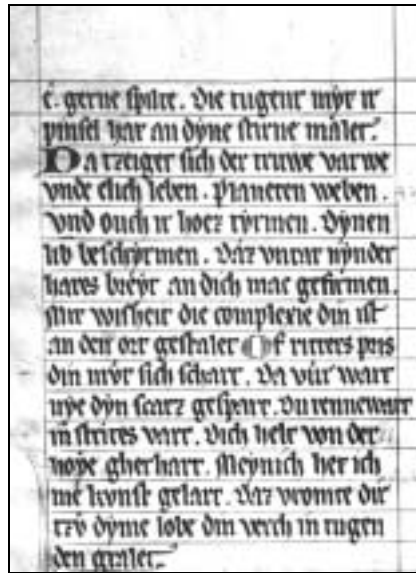 c. gerne spilt. Die tugent myt ir
pinsel hat an dyne stirne malet.
Da tzeiget sich der truwe varwe
vnde elich leben. planeten weben.
vnd ouch ir hoez tyrmen. Dynen
lib beschyrmen. Daz vnrat nynder
hares breyt an dich mac gefirmen.
Mit wisheit die complexie din ist
an den ort gestalet Of ritters pris
din mvt sich schart. Da vür wart
nye dyn scatz gespart. Du rennewart
in strites vart. Dich helt von der
hoye gherhart. Meynich her ich
me kvnst gelart. Daz vromte dir
tzv dyme lobe din verch in tugen
den gralet.